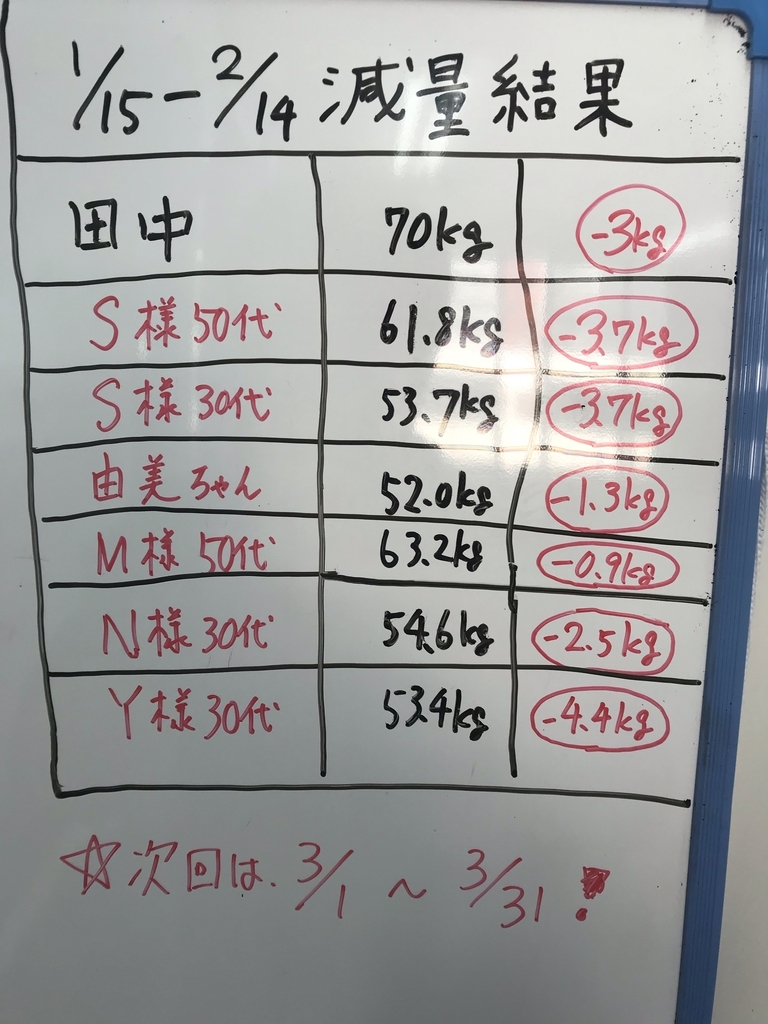 1/15-2/14 減量結果
田中 70kg -3kg
S様50代 61.8kg -3.7kg
S様30代 53.7kg -3.7kg
由美ちゃん 52.0kg -1.3kg
M様50代 63.2kg -0.9kg
N様30代 54.6kg -2.5kg
Y様30代 53.4kg -4.4kg
☆次回は、3/1～3/31!